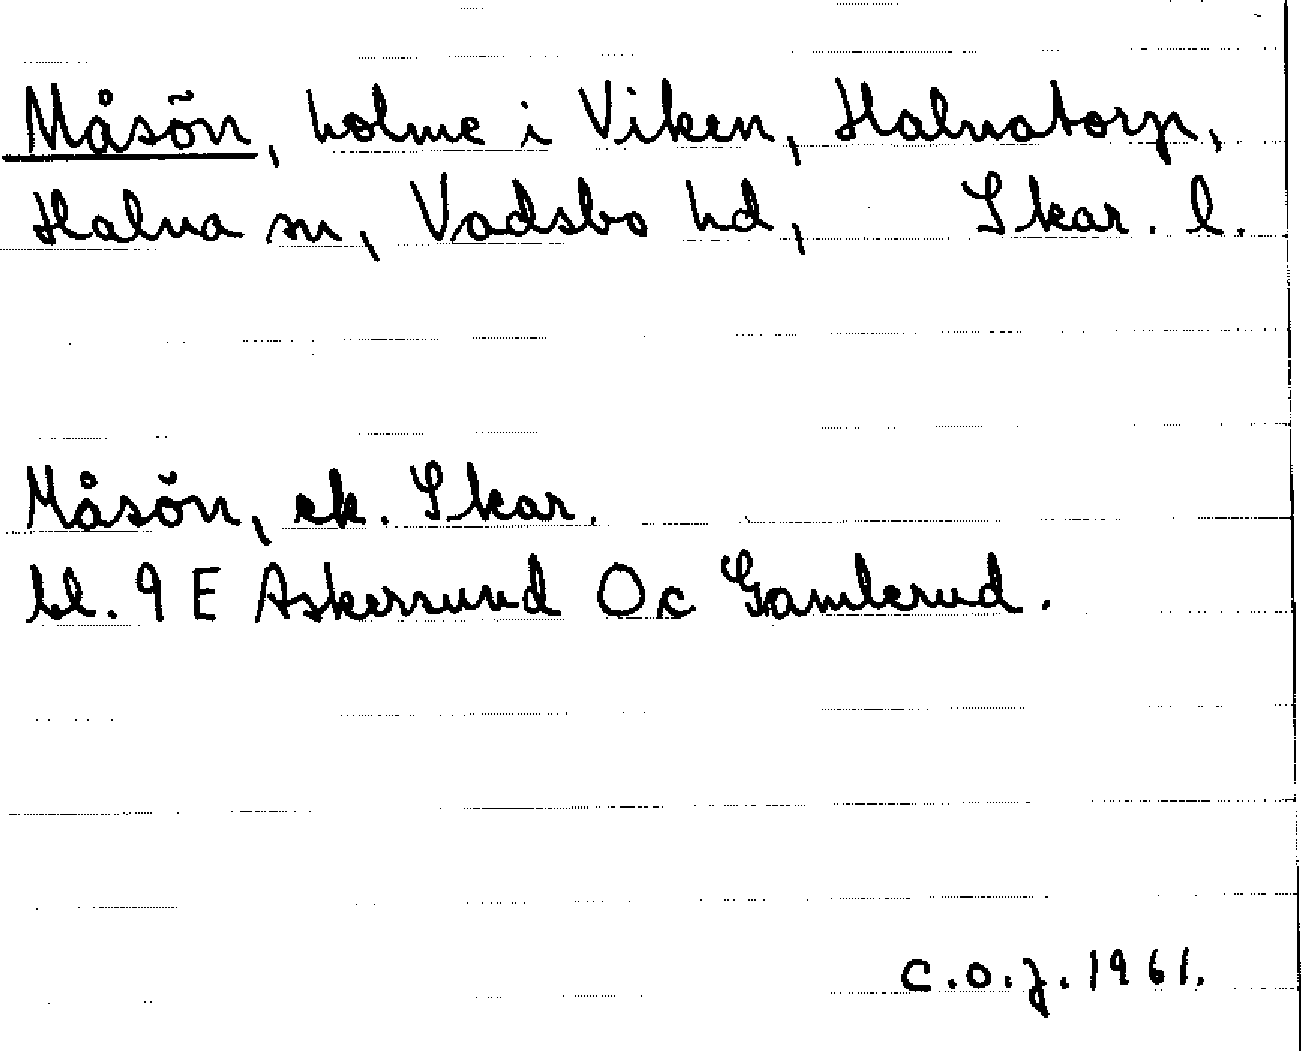 Måsön, holme i Viken, Halnatorp,
Halna sn, Vadsbo hd, Skar. l.
Måsön, ek. Skar.
bl. 9 E Askersund Oc Gamlerud.
C.O.J. 1961.